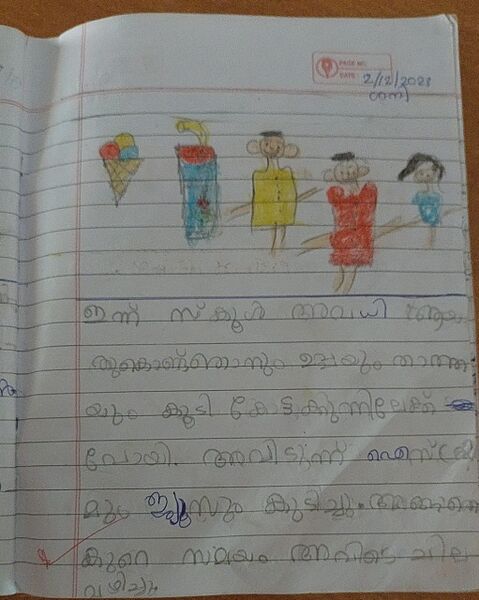 PAGE NO.
DATE: 2/12/2023
ശനി
ഇന്ന് സ്കൂൾ അവധി ആയ
തുകൊണ്ട്ഞാനും ഉപ്പയും താത്ത
യും കൂടി കോട്ടക്കുന്നിലേക്ക്
പോയി. അവിടുന്ന് ഐസ്ക്രീ
മും ജ്യൂസും കുടിച്ചു. അങ്ങനെ
കുറെ സമയം അവിടെ ചില
വഴിച്ചു